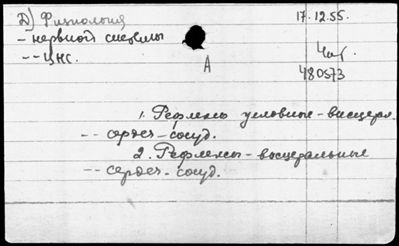 Д) Физиология
17.12.55.
- нервной системы
-- ЦНС.
Чит.
А
480573
1. Рефлексы условные - висцерал.
-- сердеч - сосуд.
2. Рефлексы - висцеральные
-- сердеч - сосуд.